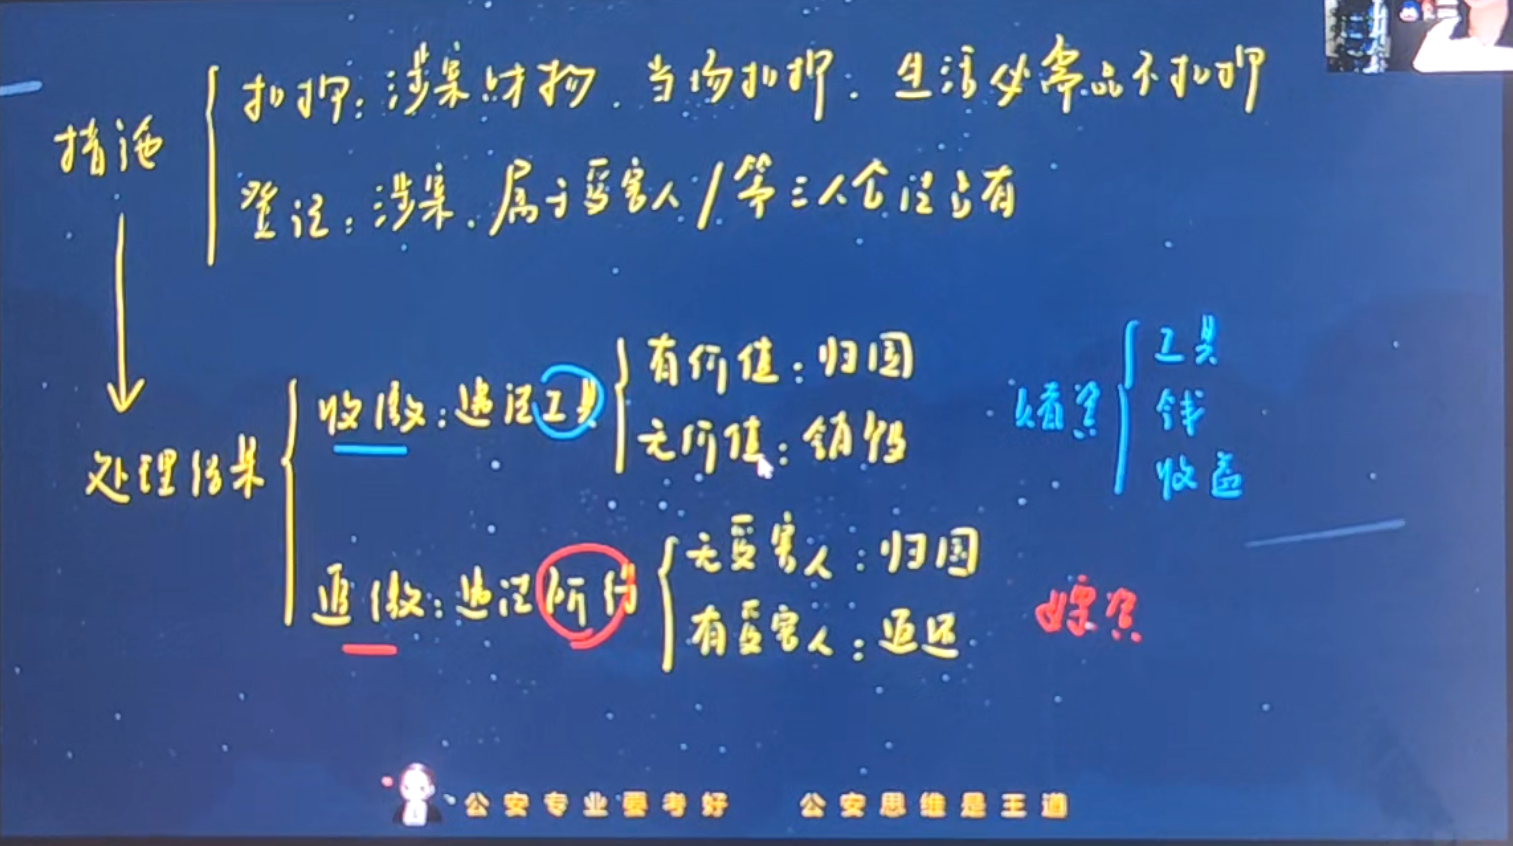 措施
扣押：涉案财物．当场扣押．生活必需品不扣押
登记：涉案．属于受害人/第三人合法占有
处理结果
收缴：违法工具
有价值：归国
无价值：销毁
赌资
工具
钱
收益
追缴：违法所得
无受害人：归国
有受害人：退还
嫖资
公安专业要考好 公安思维是王道